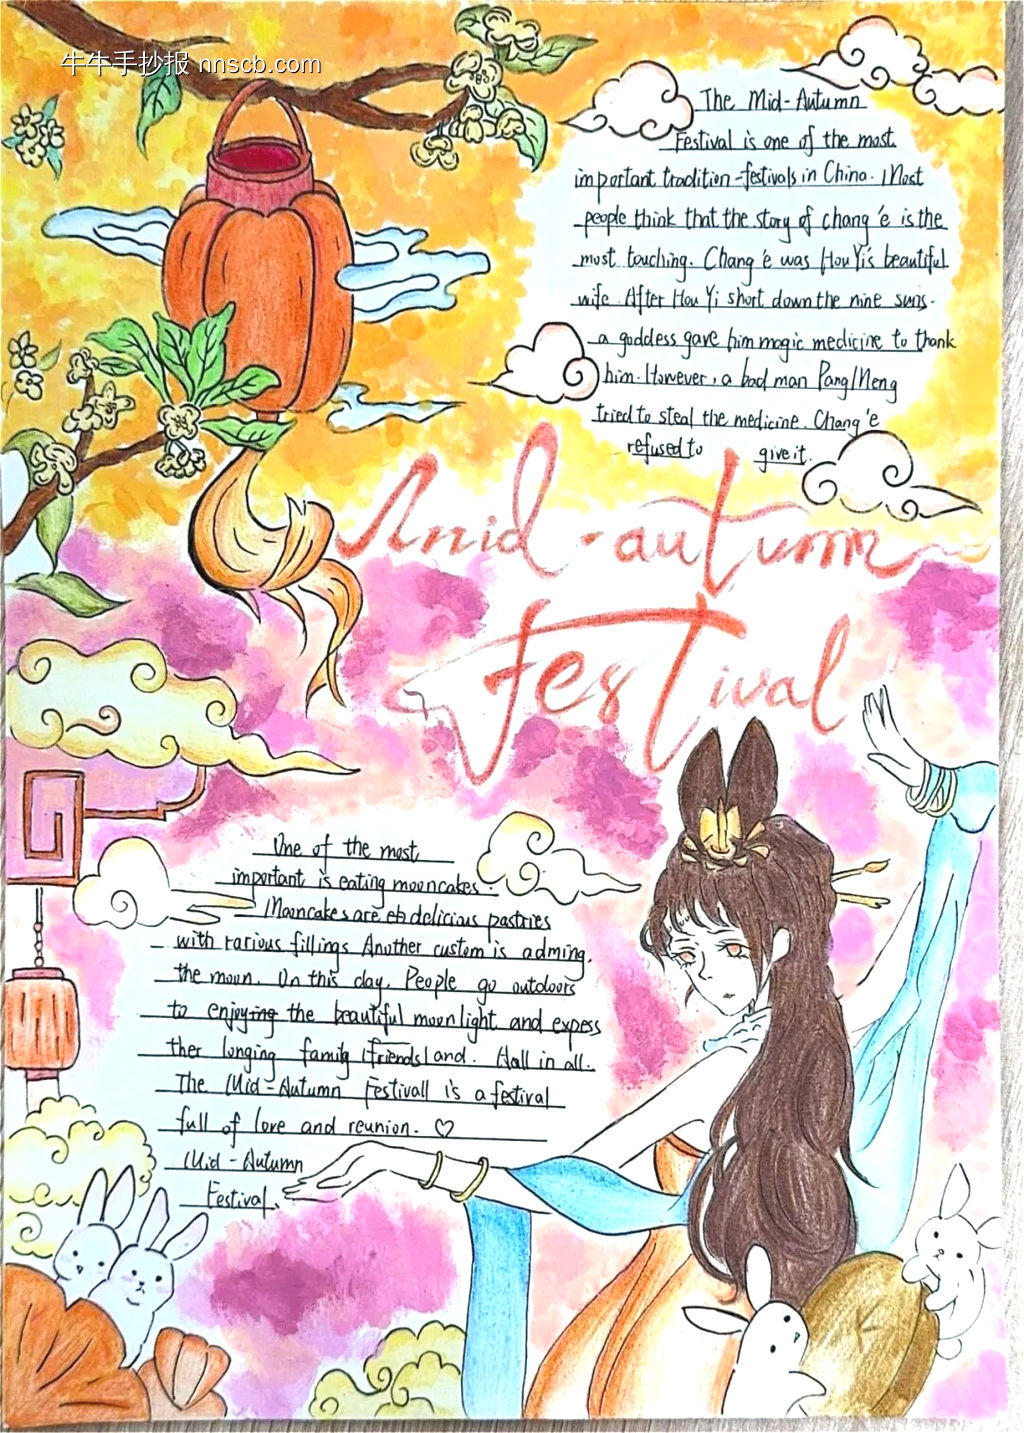 牛牛手抄报 nnscb.com
The Mid-Autumn
Festival is one of the most
important tradition-festivals in China. Most
people think that the story of chang'e is the
most touching. Chang'e was Hou Yi's beautiful
wife. After Hou Yi short down the nine suns.
a goddess gave him magic medicine to thank
him. However, a bad man Pang Meng
tried to steal the medicine. Chang'e
refused to give it.
Mid-autumn
Festival
One of the most
important is eating mooncakes.
Mooncakes are delicious pastries
with rarious fillings. Another custom is adming.
the moon. On this day. People go outdoors
to enjoying the beautiful moonlight and expess
ther longing family (friends) and. Hall in all.
The Mid-Autumn Festivall is a festival
full of love and reunion. ♡
Mid-Autumn
Festival.